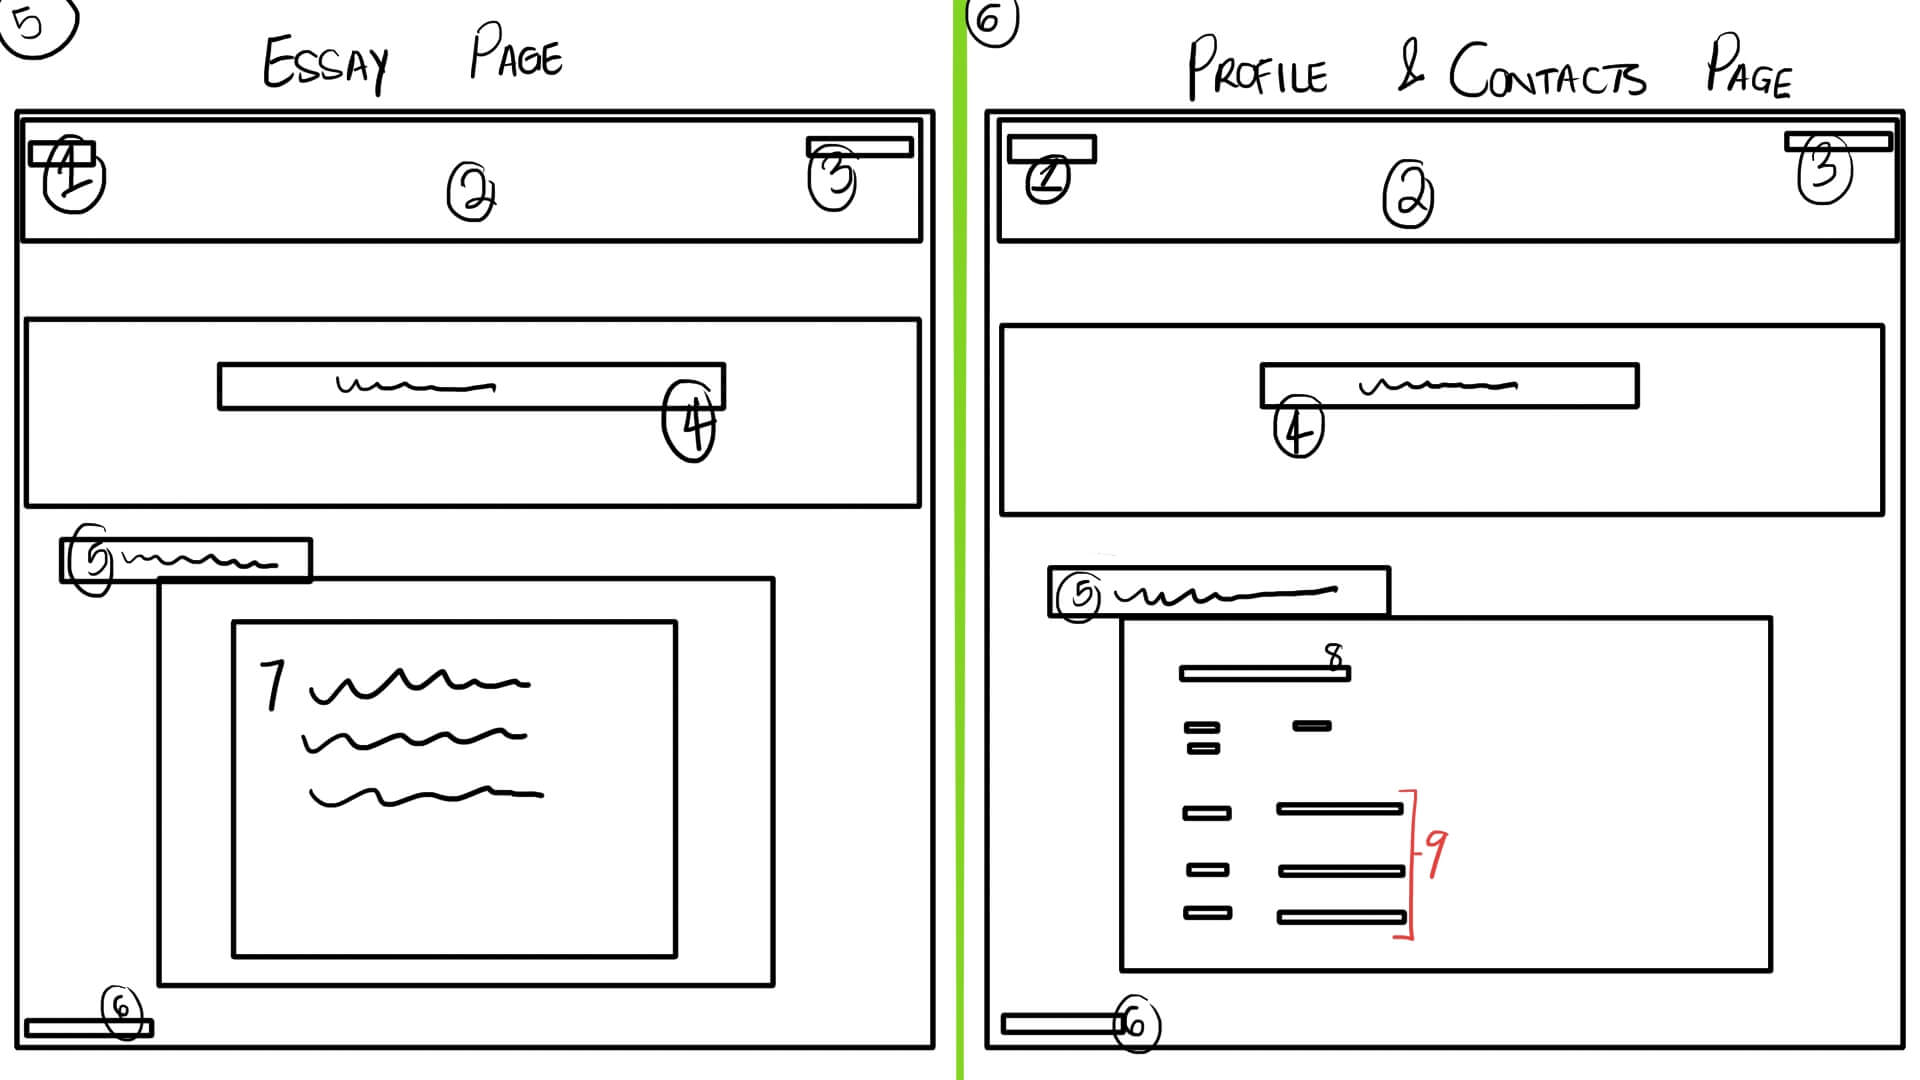 5
ESSAY PAGE
1
2
3
4
5
7
6
6
PROFILE & CONTACTS PAGE
1
2
3
4
5
8
9
6